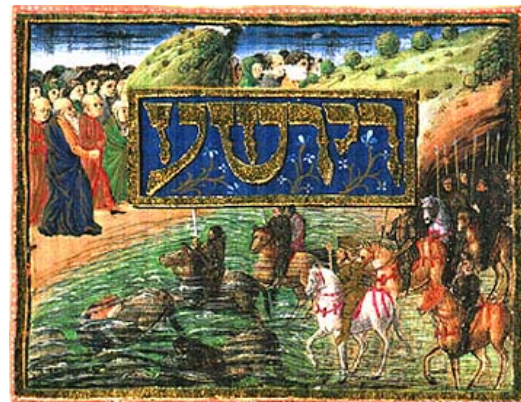 ויושע